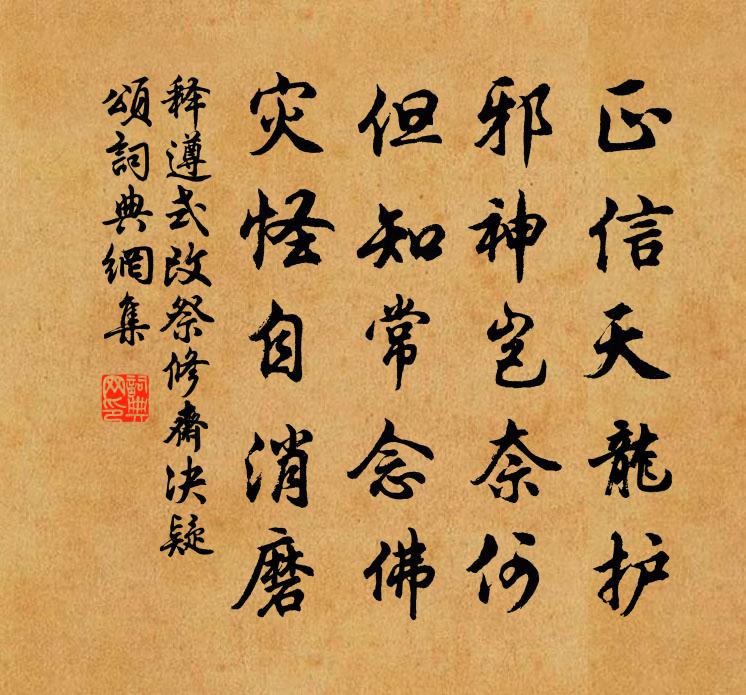 正信天龍护
邪神岂奈何
但知常念佛
灾怪自消磨
释遵式改祭修齋决疑
頌詞典網集
詞典网印